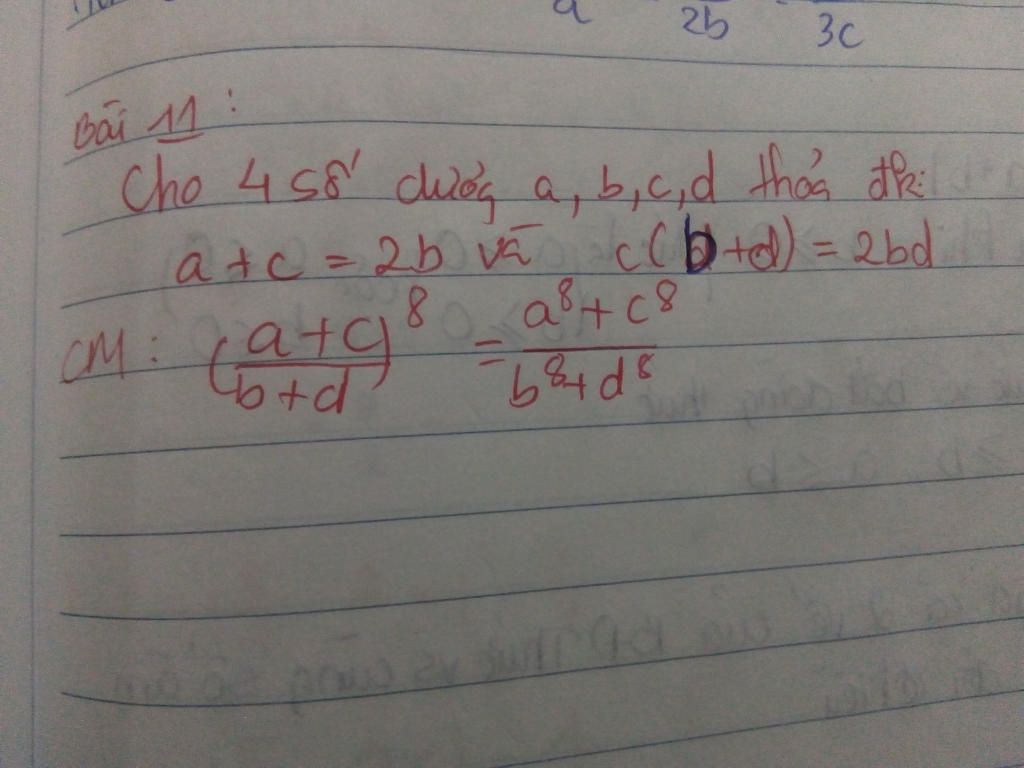 a 2b 3c
Bài 11 :
Cho 4 số dương a, b, c, d thỏa đk:
a + c = 2b và c(b+d) = 2bd
CM : (a+c/b+d)^8 = a^8 + c^8/b^8 + d^8